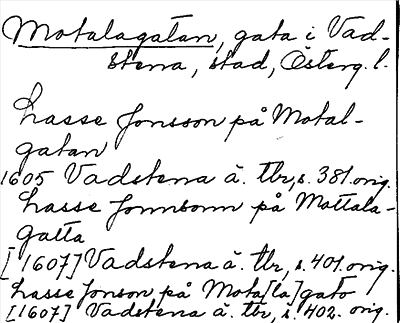 Motalagatan, gata i Vad-
stena, stad, Österg. l.
Lasse Jonsson på Motal-
gatan
1605 Vadstena ä. tbr, s. 381. orig.
Lasse Jonnsonn på Mottala-
gatta
[1607] Vadstena ä. tbr, s. 401. orig.
Lasse Jonson på Mota[la]gato
[1607] Vadstena ä. tbr, s. 402. orig.